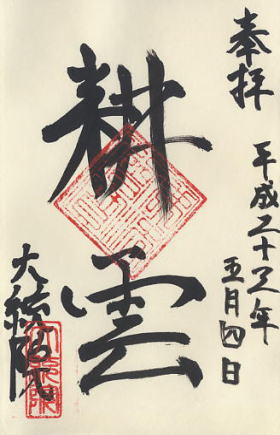 奉拝
平成二十五年
五月四日
耕雲
大統院